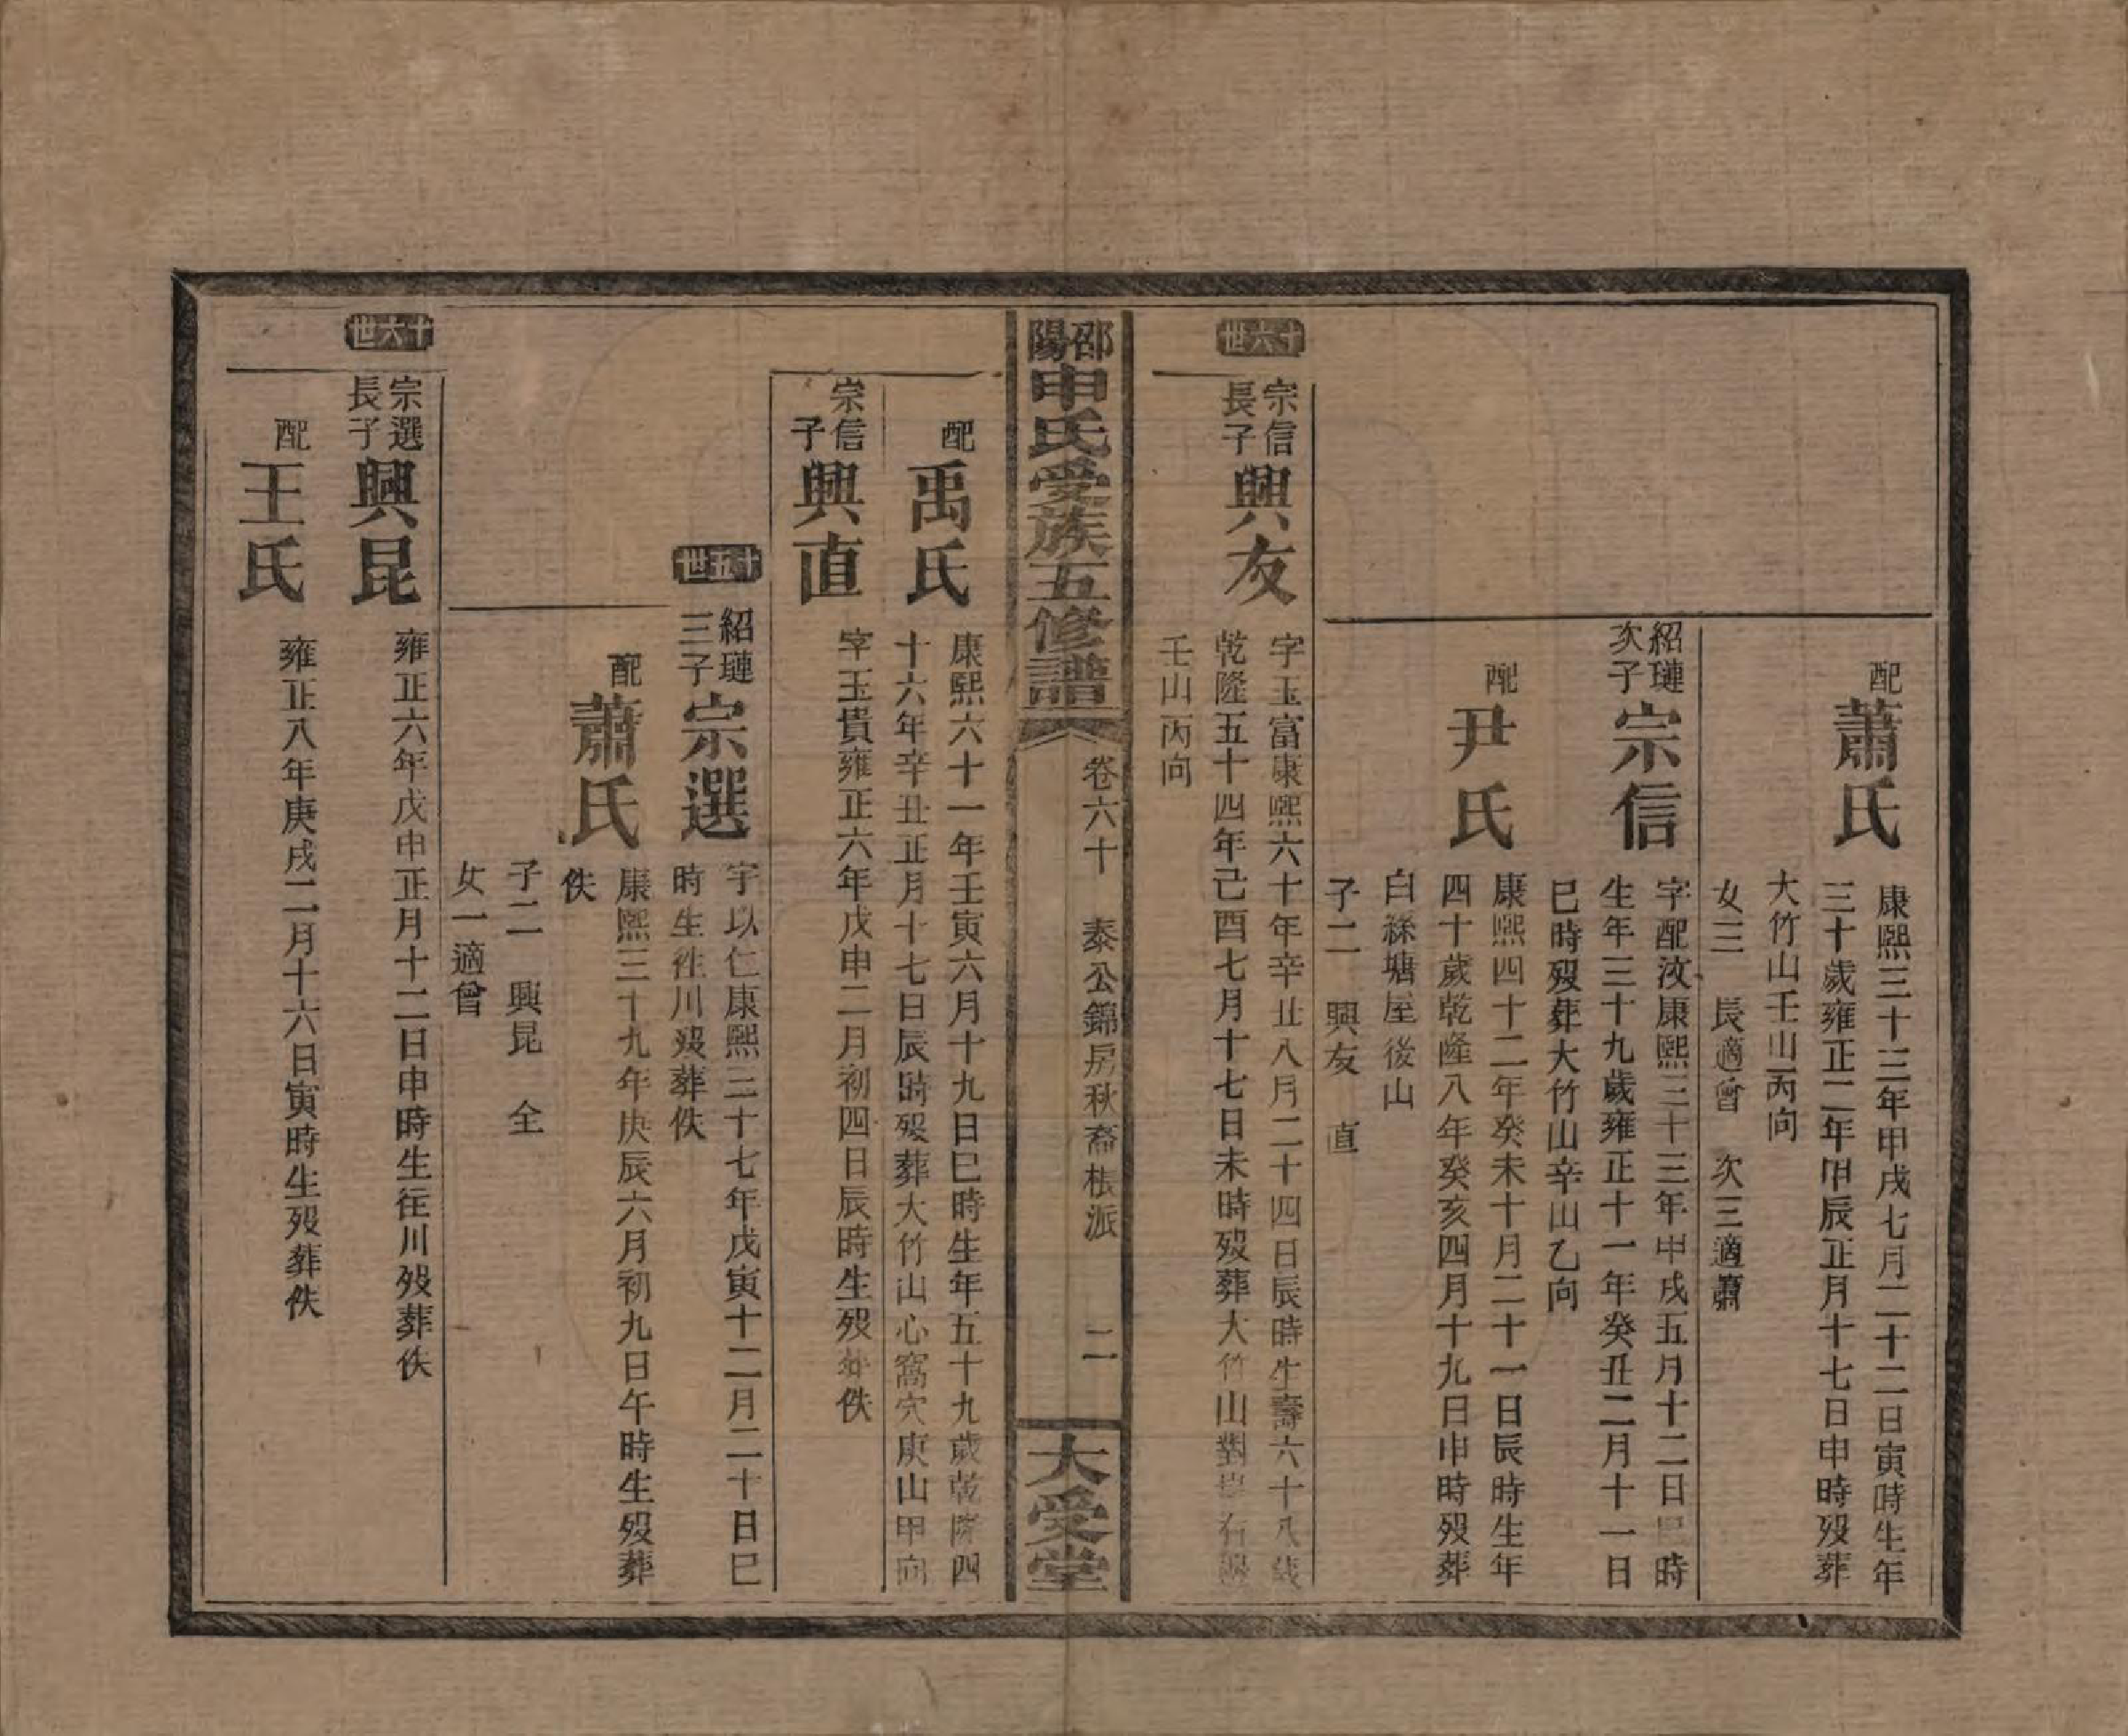 配
蕭氏
康熙三十三年甲戌七月二十二日寅時生年
三十歲雍正二年甲辰正月十七日申時歿葬
大竹山壬山丙向
女三 長適曾 次三適蕭
紹璉
次子
宗信
字配汝康熙三十三年甲戌五月十二日 時
生年三十九歲雍正十一年癸丑二月十一日
巳時歿葬大竹山辛山乙向
配
尹氏
康熙四十二年癸未十月二十一日辰時生年
四十歲乾隆八年癸亥四月十九日申時歿葬
白綠塘屋後山
子二 興友 直
十六世
宗信
長子
興友
字玉富康熙六十年辛丑八月二十四日辰時生壽六十八歲
乾隆五十四年己酉七月十七日未時歿葬大竹山對 右
壬山丙向
邵陽申氏受族五修譜
卷六十 泰公錦房秋裔棖派 二
大受堂
配
禹氏
康熙六十一年壬寅六月十九日巳時生年五十九歲乾隆四
十六年辛丑正月十七日辰時歿葬大竹山心窩穴庚山甲向
宗信
子
興直
字玉貴雍正六年戊申二月初四日辰時生歿葬佚
十五世
紹璉
三子
宗選
字以仁康熙三十七年戊寅十二月二十日巳
時生徃川歿葬佚
配
蕭氏
康熙三十九年庚辰六月初九日午時生歿葬
佚
子二 興昆 全
女一適曾
十六世
宗選
長子
興昆
雍正六年戊申正月十二日申時生往川歿葬佚
配
王氏
雍正八年庚戌二月十六日寅時生歿葬佚